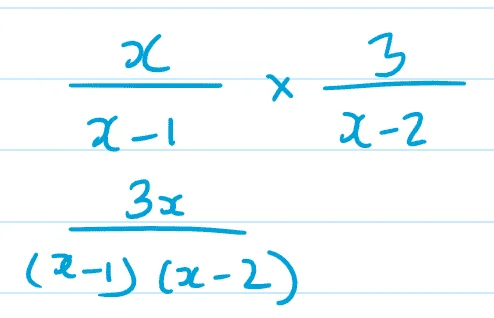 x/(x-1) × 3/(x-2)
3x/((x-1)(x-2))